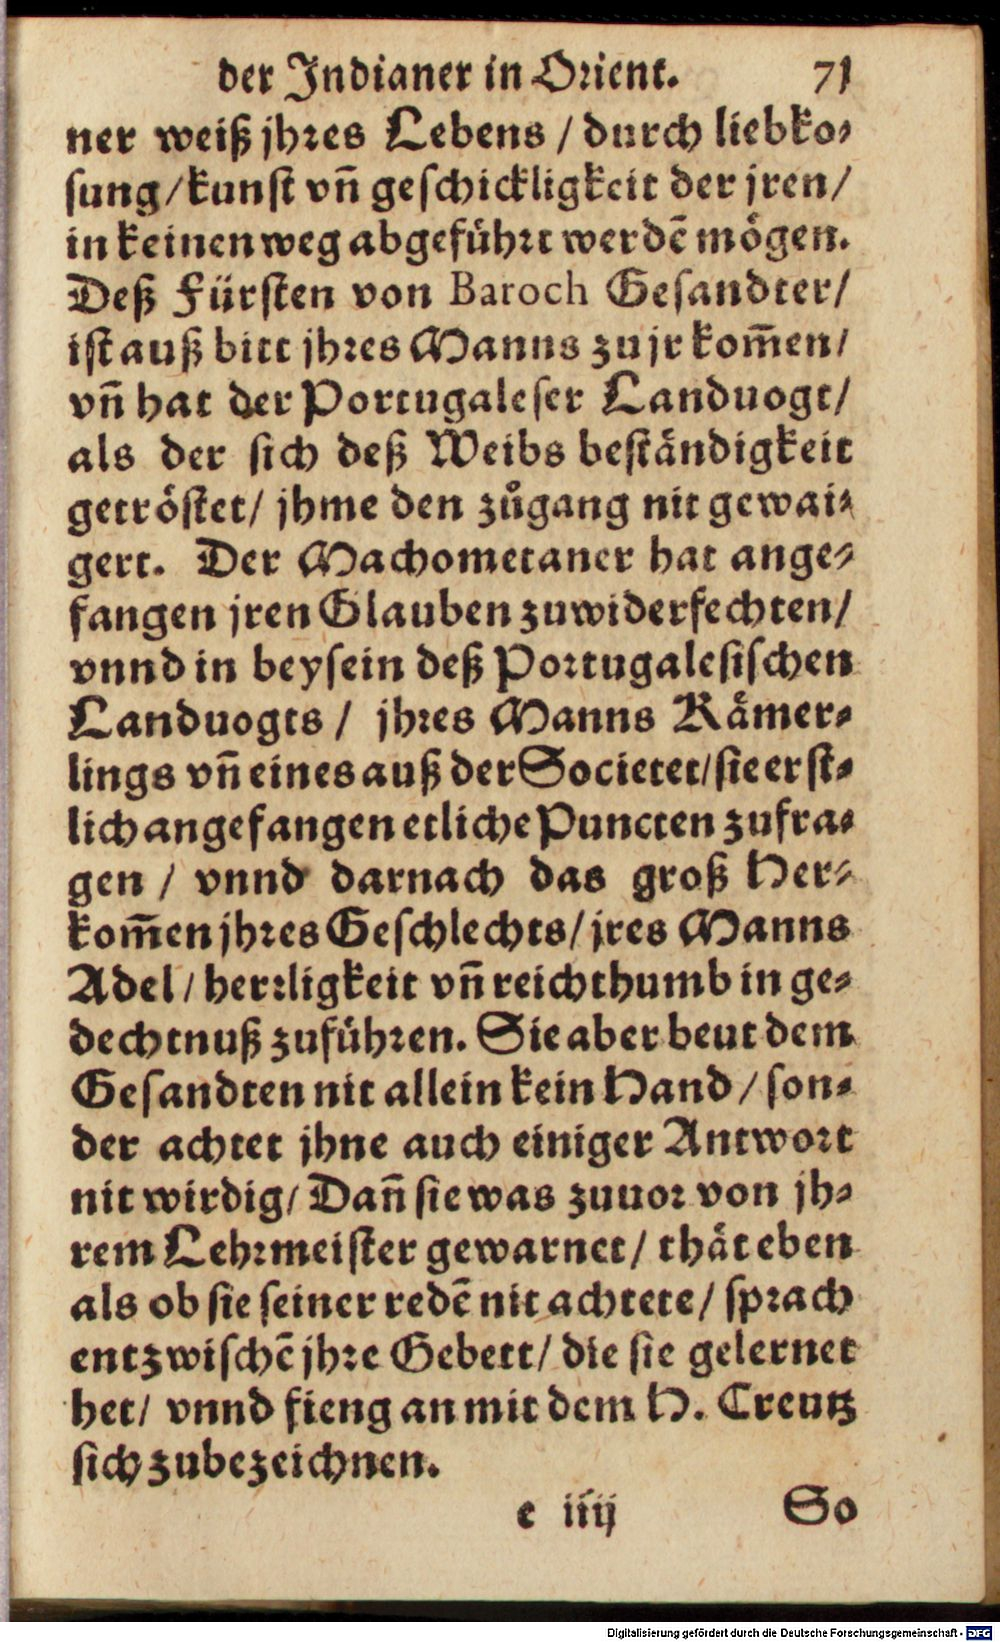 der Indianer in Orient. 71
ner weiß jhres Lebens / durch liebko⸗
sung/kunst vn̄ geschickligkeit der jren/
in keinen weg abgeführt werdē mögen.
Deß Fürsten von Baroch Gesandter/
ist auß bitt jhres Manns zu jr kom̄en/
vn̄ hat der Portugaleser Landuogt/
als der sich deß Weibs beständigkeit
getröstet/ jhme den zůgang nit gewai⸗
gert. Der Machometaner hat ange⸗
fangen jren Glauben zuwiderfechten/
vnnd in beysein deß Portugalesischen
Landuogts / jhres Manns Kämer⸗
lings vn̄ eines auß der Societet/sie erst⸗
lich angefangen etliche Puncten zufra⸗
gen / vnnd darnach das groß Her⸗
kom̄en jhres Geschlechts/ jres Manns
Adel/ herrligkeit vn̄ reichthumb in ge⸗
dechtnuß zuführen. Sie aber beut dem
Gesandten nit allein kein Hand / son⸗
der achtet jhne auch einiger Antwort
nit wirdig/ Dan̄ sie was zuuor von jh⸗
rem Lehrmeister gewarnet/ thät eben
als ob sie seiner redē nit achtete/ sprach
entzwischē jhre Gebett/ die sie gelernet
het/ vnnd fieng an mit dem H. Creutz
sich zubezeichnen.
e iiij So
Digitalisierung gefördert durch die Deutsche Forschungsgemeinschaft - DFG